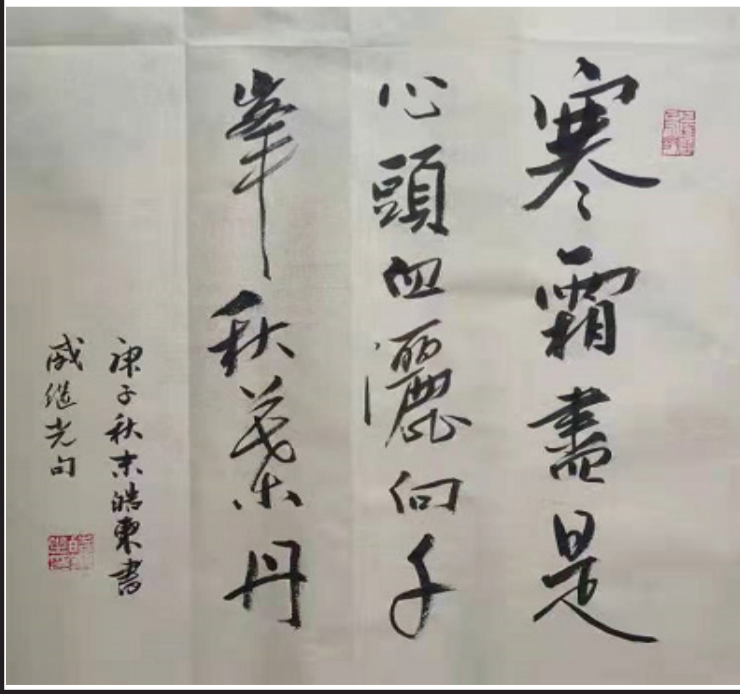 寒霜盡是
心頭血灑向千
峯秋葉丹
庚子秋末皓東書
戚继光句